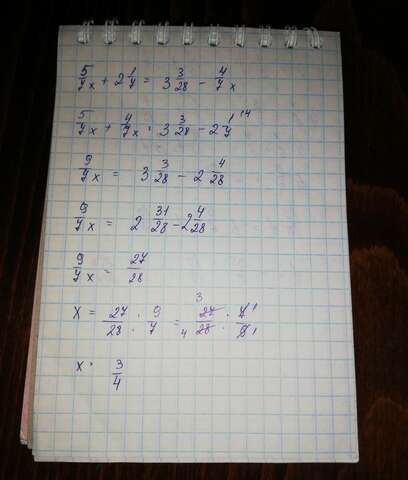 5/7 x + 2 1/7 = 3 3/28 - 4/7 x
5/7 x + 4/7 x = 3 3/28 - 2 1/7 \4
9/7 x = 3 3/28 - 2 4/28
9/7 x = 2 31/28 - 2 4/28
9/7 x = 27/28
x = 27/28 : 9/7 = 27/28 · 7/9 3 4 1 1
x = 3/4